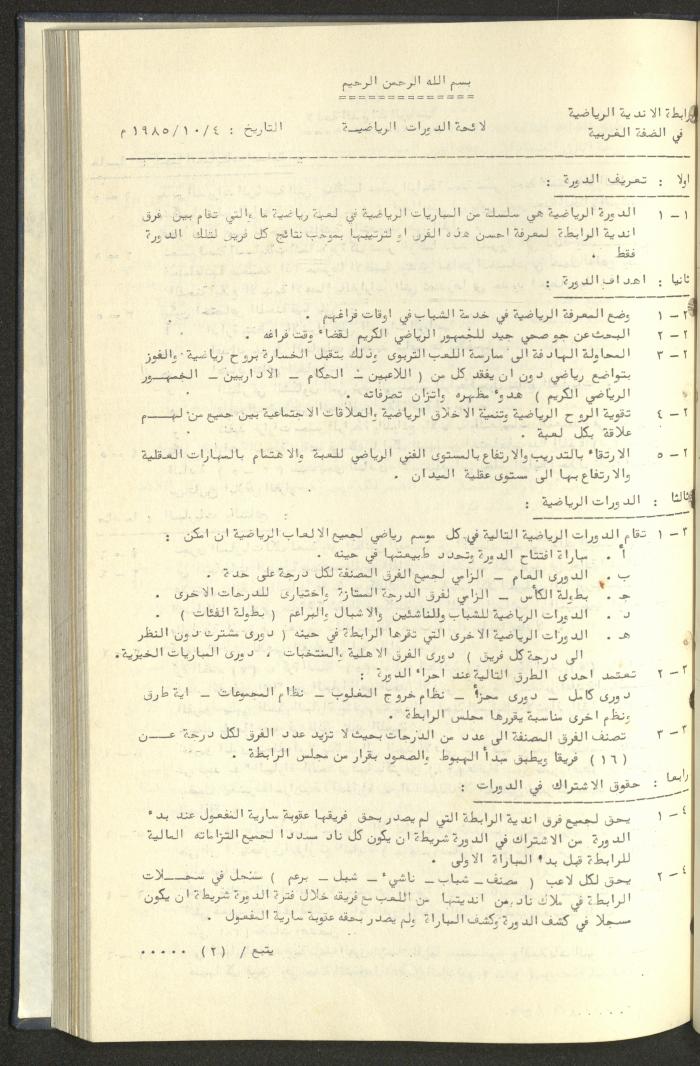 بسم الله الرحمن الرحيم
رابطة الاندية الرياضية
في الضفة الغربية
لائحة الدورات الرياضيــة
التاريخ : ١٩٨٥/١٠/٤ م
اولا : تعريف الدورة :
١ – ١ الدورة الرياضية هي سلسلة من المباريات الرياضية في لعبة رياضية ما والتي تقام بين فرق
اندية الرابطة لمعرفة احسن هذه الفرق او لترتيبها بموجب نتائج كل فريق لتلك الدورة
فقط .
ثانيا : اهداف الدورة :
٢ – ١ وضع المعرفة الرياضية في خدمة الشباب في اوقات فراغهم .
٢ – ٢ البحث عن جو صحي جيد للجمهور الرياضي الكريم لقضاء وقت فراغه .
٢ – ٣ المحاولة الهادفة الى ممارسة اللعب التربوى وذلك بتقبل الخسارة بروح رياضية والفوز
بتواضع رياضي دون ان يفقد كل من ( اللاعبين – الحكام – الاداريين – الجمهــور
الرياضي الكريم ) هدوء مظهره واتزان تصرفاته .
٢ – ٤ تقوية الروح الرياضية وتنمية الاخلاق الرياضية والعلاقات الاجتماعية بين جميع من لهــم
علاقة بكل لعبة .
٢ – ٥ الارتقاء بالتدريب والارتفاع بالمستوى الفني الرياضي للعبة والاهتمام بالمهارات العقلية
والارتفاع بها الى مستوى عقلية الميدان .
ثالثا : الدورات الرياضية :
٣ – ١ تقام الدورات الرياضية التالية في كل موسم رياضي لجميع الالعاب الرياضية ان امكن :
أ . مباراة افتتاح الدورة وتحدد طبيعتها في حينه .
ب . الدورى العام – الزامي لجميع الفرق المصنفة لكل درجة على حدة .
جـ . بطولة الكأس – الزامي لفرق الدرجة الممتازة واختيارى للدرجات الاخرى .
د . الدورات الرياضية للشباب وللناشئين والاشبال والبراعم ( بطولة الفئات ) .
هـ . الدورات الرياضية الاخرى التي تقرها الرابطة في حينه ( دورى مشترك دون النظر
الى درجة كل فريق ) دورى الفرق الاهلية والمنتخبات ، دورى المباريات الخيرية .
٣ – ٢ تعتمد احدى الطرق التالية عند اجراء الدورة :
دورى كامل – دورى مجزأ – نظام خروج المغلوب – نظام المجموعات – اية طرق
ونظم اخرى مناسبة يقررها مجلس الرابطة .
٣ – ٣ تصنف الفرق المصنفة الى عدد من الدرجات بحيث لا تزيد عدد الفرق لكل درجة عــن
( ١٦ ) فريقا ويطبق مبدأ الهبوط والصعود بقرار من مجلس الرابطة .
رابعا : حقوق الاشتراك في الدورات :
٤ – ١ يحق لجميع فرق اندية الرابطة التي لم يصدر بحق فريقها عقوبة سارية المفعول عند بدء
الدورة من الاشتراك في الدورة شريطة ان يكون كل ناد مسددا لجميع التزاماته المالية
للرابطة قبل بدء المباراة الاولى .
٤ – ٢ يحق لكل لاعب ( مصنف – شباب – ناشيء – شبل – برعم ) سجل في سجــلات
الرابطة في ملاك ناد من انديتها من اللعب مع فريقه خلال فترة الدورة شريطة ان يكون
مسجلا في كشف الدورة وكشف المباراة ولم يصدر بحقه عقوبة سارية المفعول .
يتبع / (٢) .....